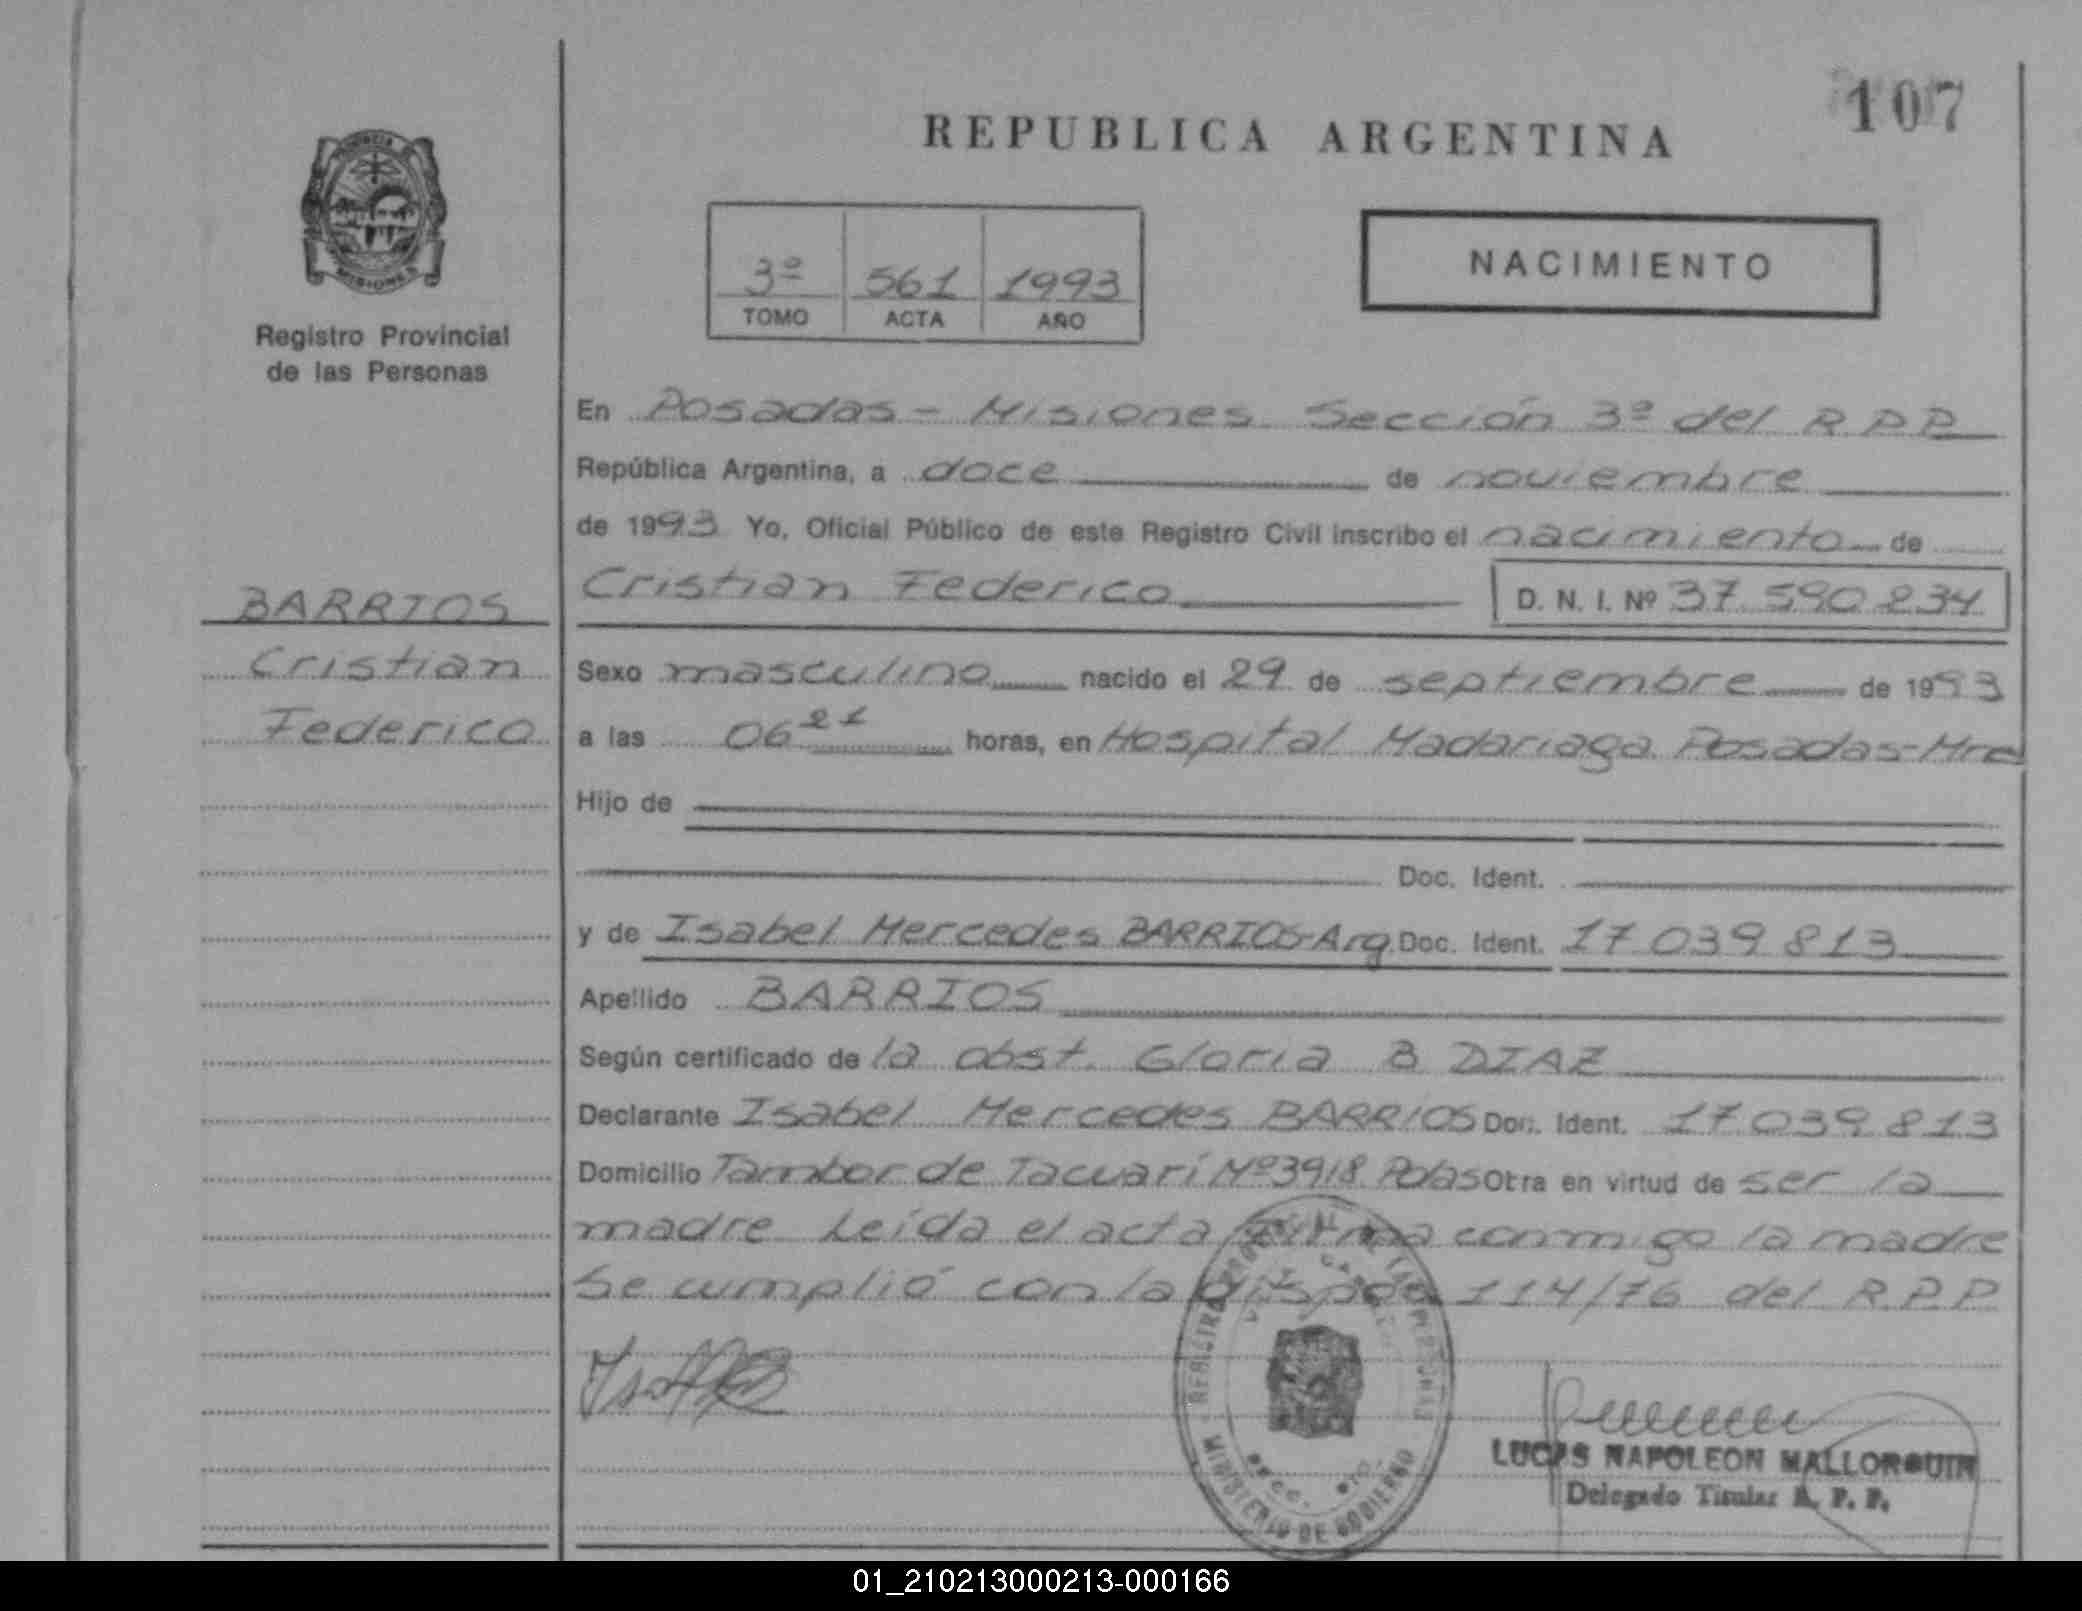 107
REPUBLICA ARGENTINA
PROVINCIA
MISIONES
Registro Provincial
de las Personas
3º 561 1993
TOMO ACTA AÑO
NACIMIENTO
En Posadas - Misiones Sección 3º del R P P
República Argentina, a doce de noviembre
de 1993 Yo, Oficial Público de este Registro Civil inscribo el nacimiento de
Cristian Federico D. N. I. Nº 37.590.234
BARRIOS
Cristian
Federico
Sexo masculino nacido el 29 de septiembre de 1993
a las 06 21 horas, en Hospital Madariaga Posadas-Mnes
Hijo de
Doc. Ident.
y de Isabel Mercedes BARRIOS-Arg. Doc. Ident. 17 039 813
Apellido BARRIOS
Según certificado de la obst. Gloria B DIAZ
Declarante Isabel Mercedes BARRIOS Doc. Ident. 17 039 813
Domicilio Tambor de Tacuarí Nº 3918 Pdas Otra en virtud de ser la
madre Leída el acta firma conmigo la madre
Se cumplió con la dispos 114/76 del R.P.P
REGISTRO PROVINCIAL DE LAS PERSONAS
MINISTERIO DE GOBIERNO
LUCAS NAPOLEON MALLORQUIN
Delegado Titular R. P. P.
01_210213000213-000166